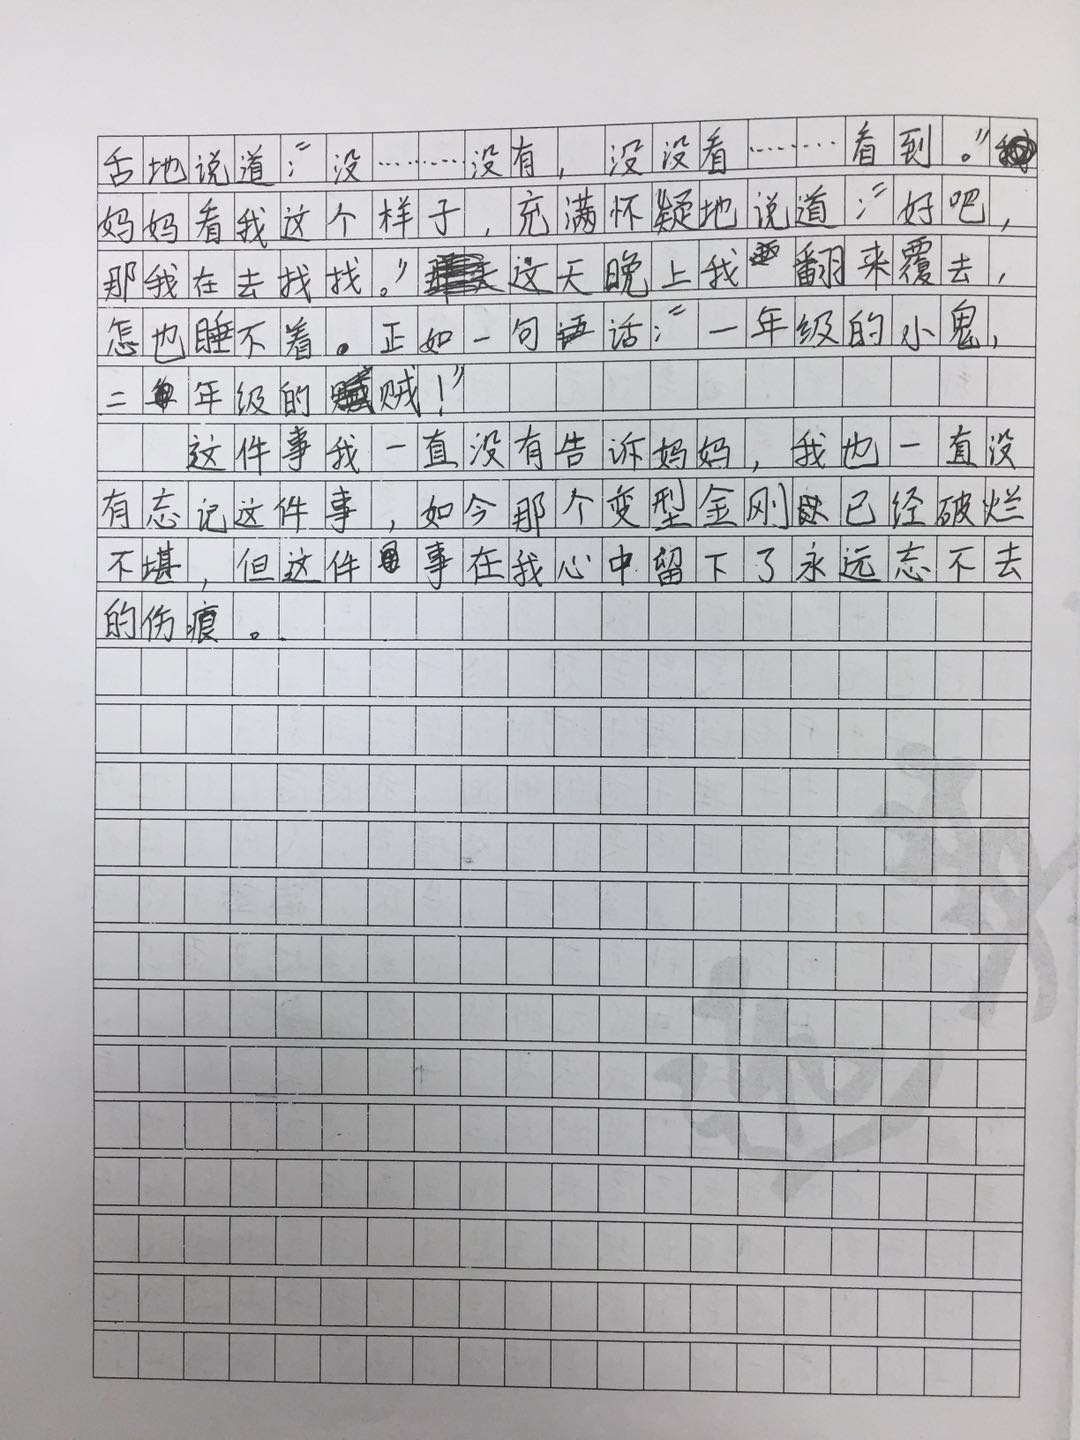 舌地说道：“没………没有，没没看………看到。”
妈妈看我这个样子，充满怀疑地说道：“好吧，
那我在去找找。”这天晚上我翻来覆去，
怎也睡不着。正如一句话：“一年级的小鬼，
二年级的贼！”
这件事我一直没有告诉妈妈，我也一直没
有忘记这件事，如今那个变型金刚已经破烂
不堪，但这件事在我心中留下了永远忘不去
的伤痕。